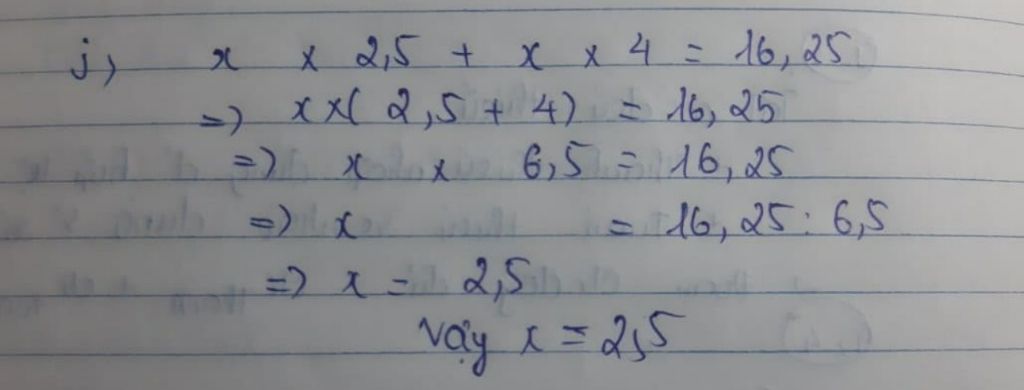 j) x x 2,5 + x x 4 = 16,25
=) x x ( 2,5 + 4) = 16,25
=) x x 6,5 = 16,25
=) x = 16,25 : 6,5
=) x = 2,5
Vậy x = 2,5